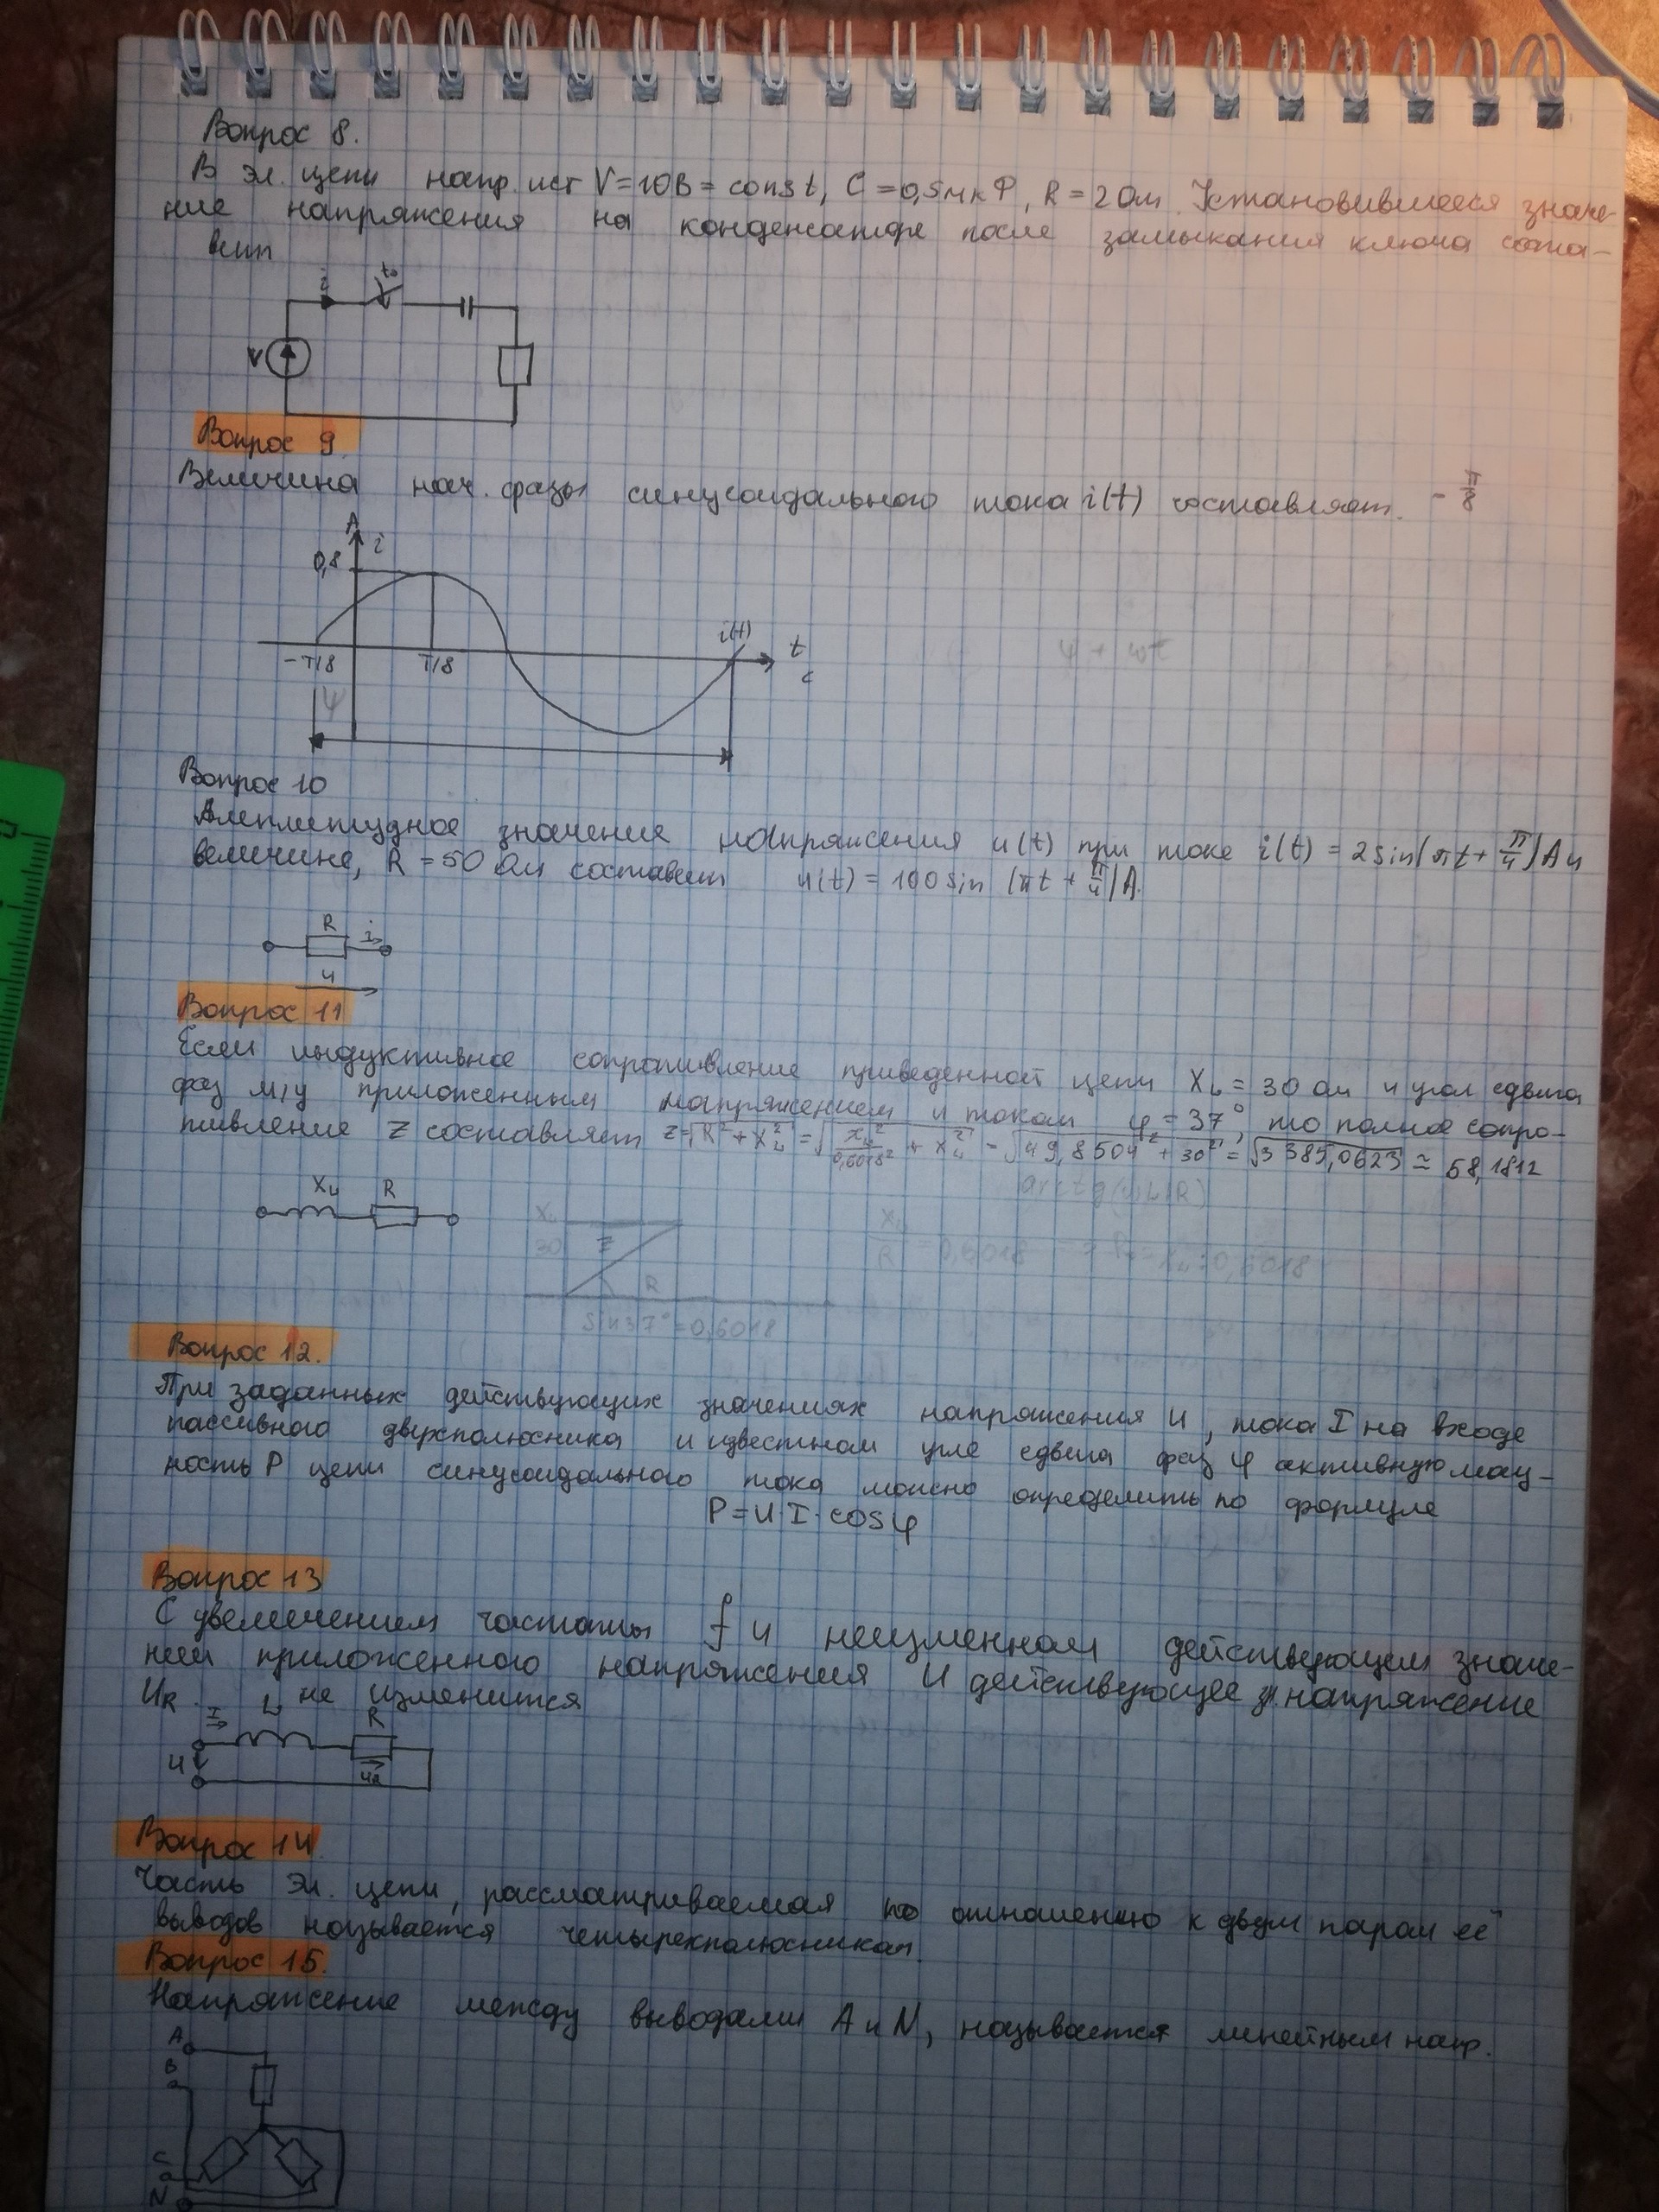 Вопрос 8.
В эл. цепи напр. ист V=10В = const, C=0,5мкФ, R=2Ом. Установившееся значе-
ние напряжения на конденсаторе после замыкания ключа соста-
вит
i t₀
V
Вопрос 9.
Величина нач. фазы синусоидального тока i(t) составляет. -π/8
A i
0,8
i(t) t
-π/8 π/8 c
ψ
ψ + ωt
Вопрос 10
Амплитудное значение напряжения u(t) при токе i(t) = 2sin(πt + π/4) A и
величине, R = 50 Ом составит u(t) = 100 sin (πt + π/4) A.
R i
u
Вопрос 11
Если индуктивное сопротивление приведенной цепи X_L = 30 Ом и угол сдвига
фаз м/у приложенным напряжением и током φ = 37°, то полное сопро-
тивление Z составляет Z=√R²+X_L² = √X_L²/0,6018² + X_L² = √49,8504² + 30² = √3385,0623 ≃ 58,1812
arctg(ωL/R)
X_L R
X_L
30 Z
R
X_L/R = 0,6018 => R = X_L : 0,6018
sin37° = 0,6018
Вопрос 12.
При заданных действующих значениях напряжения U, тока I на входе
пассивного двухполюсника и известном угле сдвига фаз φ активную мощ-
ность P цепи синусоидального тока можно определить по формуле
P = U·I·cosφ
Вопрос 13
С увеличением частоты f и неизменном действующем значе-
нии приложенного напряжения U действующее зн. напряжение
U_R. не изменится
I L R
U
U_R
Вопрос 14.
Часть эл. цепи, рассматриваемая по отношению к двум парам её
выводов называется четырехполюсником
Вопрос 15.
Напряжение между выводами A и N, называется линейным напр.
A
B
C
N